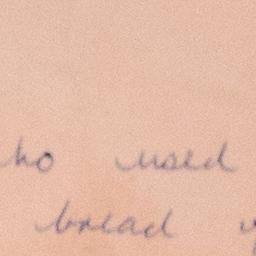 who used
bread